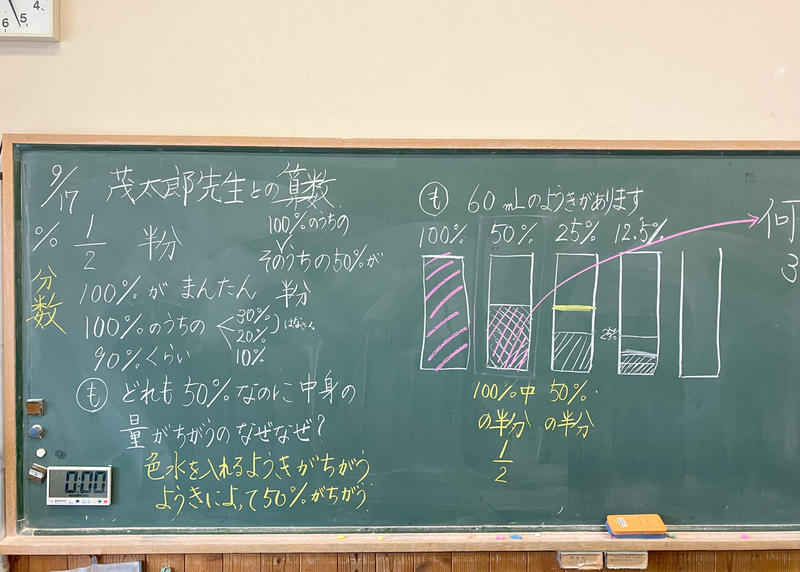 4
5
6
9/17 茂太郎先生との算数
% 1/2 半分
100%のうちの
そのうちの50%が
半分
分数
100%が まんたん
100%のうちの
30%
20%
10%
90%くらい
も どれも50%なのに中身の
量がちがうのなぜなぜ?
色水を入れるようきがちがう
ようきによって50%がちがう
0:00
も 60mLのようきがあります
100% 50% 25% 12.5%
25%
100%中の半分
1/2
50%の半分
何
3